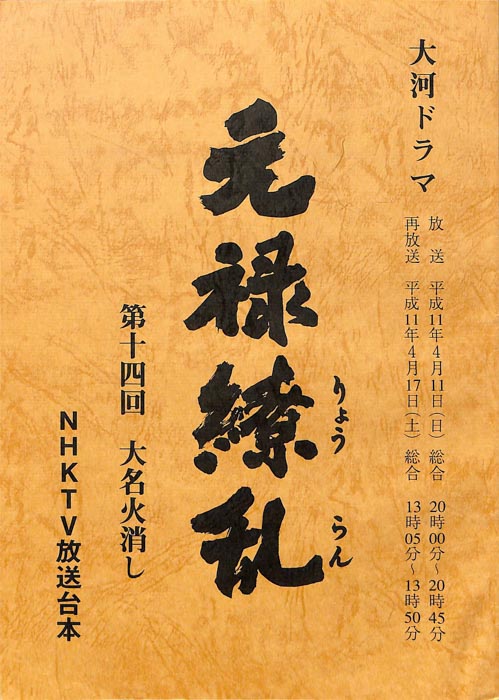 大河ドラマ
放送 平成11年4月11日(日) 総合 20時00分~20時45分
再放送 平成11年4月17日(土) 総合 13時05分~13時50分
元禄繚乱
りょう らん
第十四回 大名火消し
NHKTV放送台本